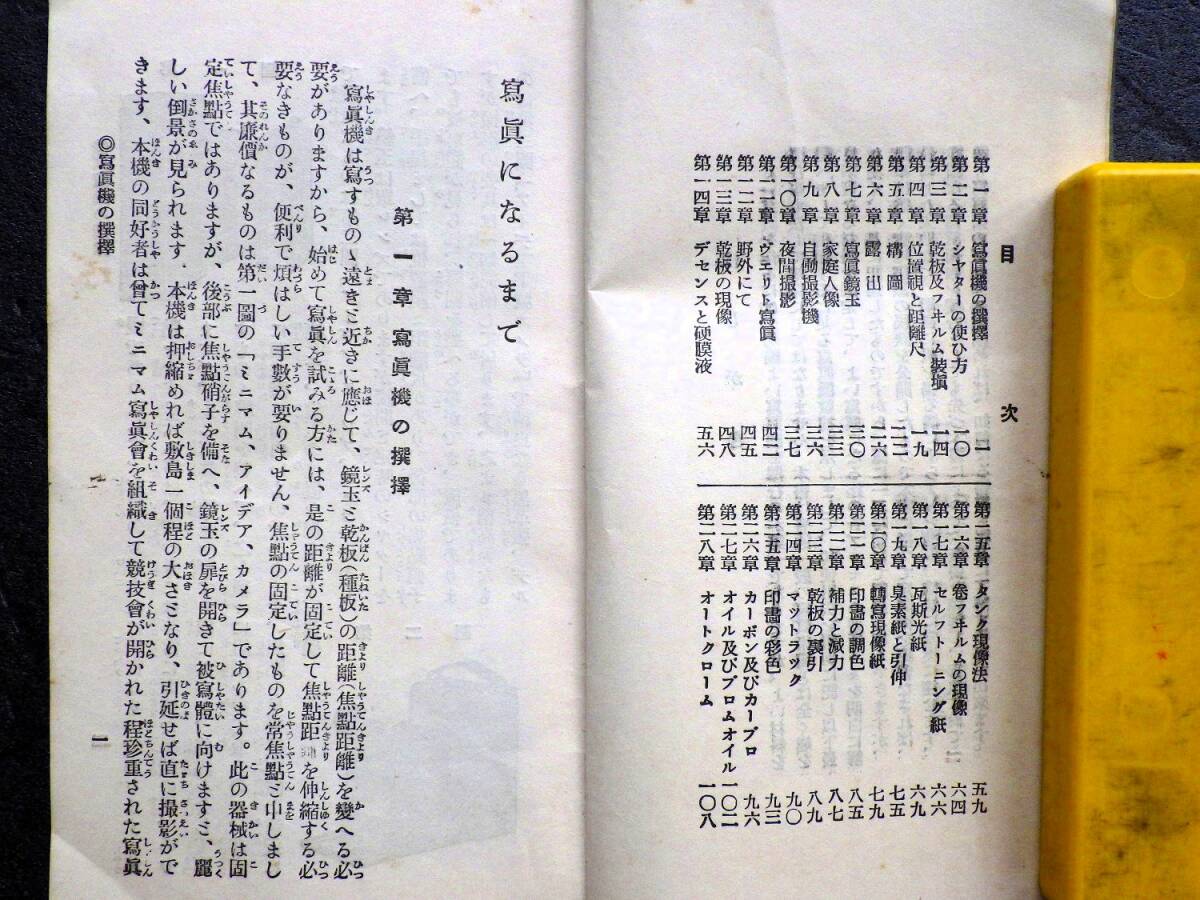 目次
第一章 寫眞機の撰擇 一
第二章 シヤターの使ひ方 一〇
第三章 乾板及フヰルム裝塡 一四
第四章 位置視と距離尺 一九
第五章 構圖 二二
第六章 露出 二六
第七章 寫眞鏡玉 三〇
第八章 家庭人像 三三
第九章 自働撮影機 三六
第一〇章 夜間撮影 三七
第一一章 ヴエリト寫眞 四二
第一二章 野外にて 四五
第一三章 乾板の現像 四八
第一四章 デセンスと硬膜液 五六
第一五章 タンク現像法 五九
第一六章 卷フヰルムの現像 六四
第一七章 セルフトーニング紙 六六
第一八章 瓦斯光紙 六九
第一九章 臭素紙と引伸 七五
第二〇章 轉寫現像紙 七九
第二一章 印畵の調色 八五
第二二章 補力と減力 八七
第二三章 乾板の裏引 八九
第二四章 マットラック 九〇
第二五章 印畵の彩色 九三
第二六章 カーボン及びカーブロ 九六
第二七章 オイル及びブロムオイル 一〇二
第二八章 オートクローム 一〇八
寫眞になるまで
第一章 寫眞機の撰擇
寫眞機は寫すものゝ遠きと近きに應じて、鏡玉と乾板(種板)の距離(焦點距離)を變へる必
要がありますから、始めて寫眞を試みる方には、是の距離が固定して焦點距 を伸縮する必
要なきものが、便利で煩はしい手數が要りません、焦點の固定したものを常焦點と申しまし
て、其廉價なるものは第一圖の「ミニマム、アイデア、カメラ」であります。此の器械は固
定焦點ではありますが、後部に焦點硝子を備へ、鏡玉の扉を開きて被寫體に向けますと、麗
しい倒景が見られます．本機は押縮めれば敷島一個程の大さとなり、引延せば直に撮影がで
きます、本機の同好者は曾てミニマム寫眞會を組織して競技會が開かれた程珍重された寫眞
◎寫眞機の撰擇
一